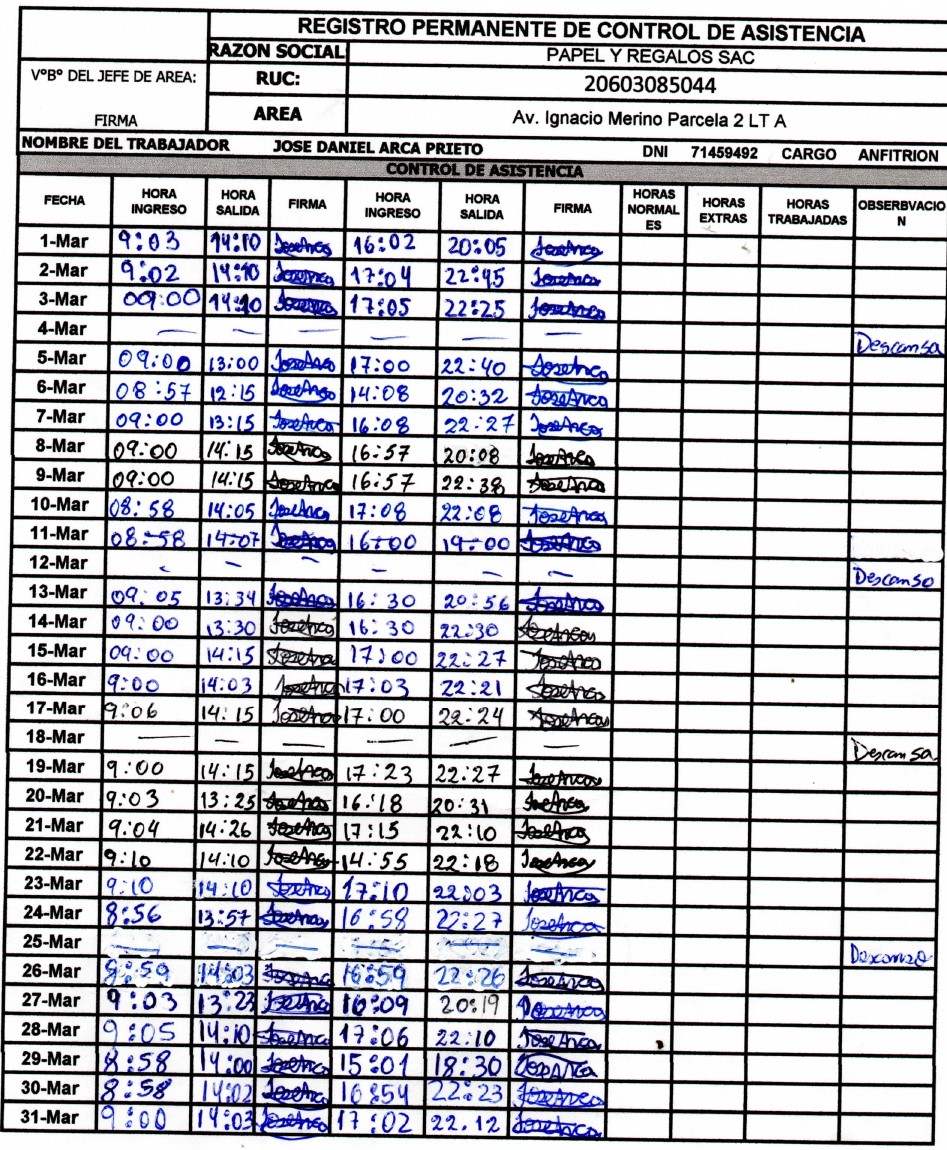 REGISTRO PERMANENTE DE CONTROL DE ASISTENCIA
RAZON SOCIAL PAPEL Y REGALOS SAC
VºBº DEL JEFE DE AREA: RUC: 20603085044
FIRMA AREA Av. Ignacio Merino Parcela 2 LT A
NOMBRE DEL TRABAJADOR JOSE DANIEL ARCA PRIETO DNI 71459492 CARGO ANFITRION
CONTROL DE ASISTENCIA
FECHA HORA INGRESO HORA SALIDA FIRMA HORA INGRESO HORA SALIDA FIRMA HORAS NORMALES HORAS EXTRAS HORAS TRABAJADAS OBSERBVACION
1-Mar 9:03 14:10 JoseArca 16:02 20:05 JoseArca
2-Mar 9:02 14:10 JoseArca 17:04 22:45 JoseArca
3-Mar 09:00 14:10 JoseArca 17:05 22:25 JoseArca
4-Mar — — — — — — Descansa
5-Mar 09:00 13:00 JoseArca 17:00 22:40 JoseArca
6-Mar 08:57 12:15 JoseArca 14:08 20:32 JoseArca
7-Mar 09:00 13:15 JoseArca 16:08 22:27 JoseArca
8-Mar 09:00 14:15 JoseArca 16:57 20:08 JoseArca
9-Mar 09:00 14:15 JoseArca 16:57 22:38 JoseArca
10-Mar 08:58 14:05 JoseArca 17:08 22:08 JoseArca
11-Mar 08:58 14:07 JoseArca 16:00 19:00 JoseArca
12-Mar — — — — — — Descanso
13-Mar 09:05 13:34 JoseArca 16:30 20:56 JoseArca
14-Mar 09:00 13:30 JoseArca 16:30 22:30 JoseArca
15-Mar 09:00 14:15 JoseArca 17:00 22:27 JoseArca
16-Mar 9:00 14:03 JoseArca 17:03 22:21 JoseArca
17-Mar 9:06 14:15 JoseArca 17:00 22:24 JoseArca
18-Mar — — — — — — Descansa
19-Mar 9:00 14:15 JoseArca 17:23 22:27 JoseArca
20-Mar 9:03 13:25 JoseArca 16:18 20:31 JoseArca
21-Mar 9:04 14:26 JoseArca 17:15 22:10 JoseArca
22-Mar 9:10 14:10 JoseArca 14:55 22:18 JoseArca
23-Mar 9:10 14:10 JoseArca 17:10 22:03 JoseArca
24-Mar 8:56 13:57 JoseArca 16:58 22:27 JoseArca
25-Mar — — — — — — Descanso
26-Mar 8:59 14:03 JoseArca 16:59 22:26 JoseArca
27-Mar 9:03 13:23 JoseArca 16:09 20:19 JoseArca
28-Mar 9:05 14:10 JoseArca 17:06 22:10 JoseArca
29-Mar 8:58 14:00 JoseArca 15:01 18:30 JoseArca
30-Mar 8:58 14:02 JoseArca 16:54 22:23 JoseArca
31-Mar 9:00 14:03 JoseArca 17:02 22.12 JoseArca